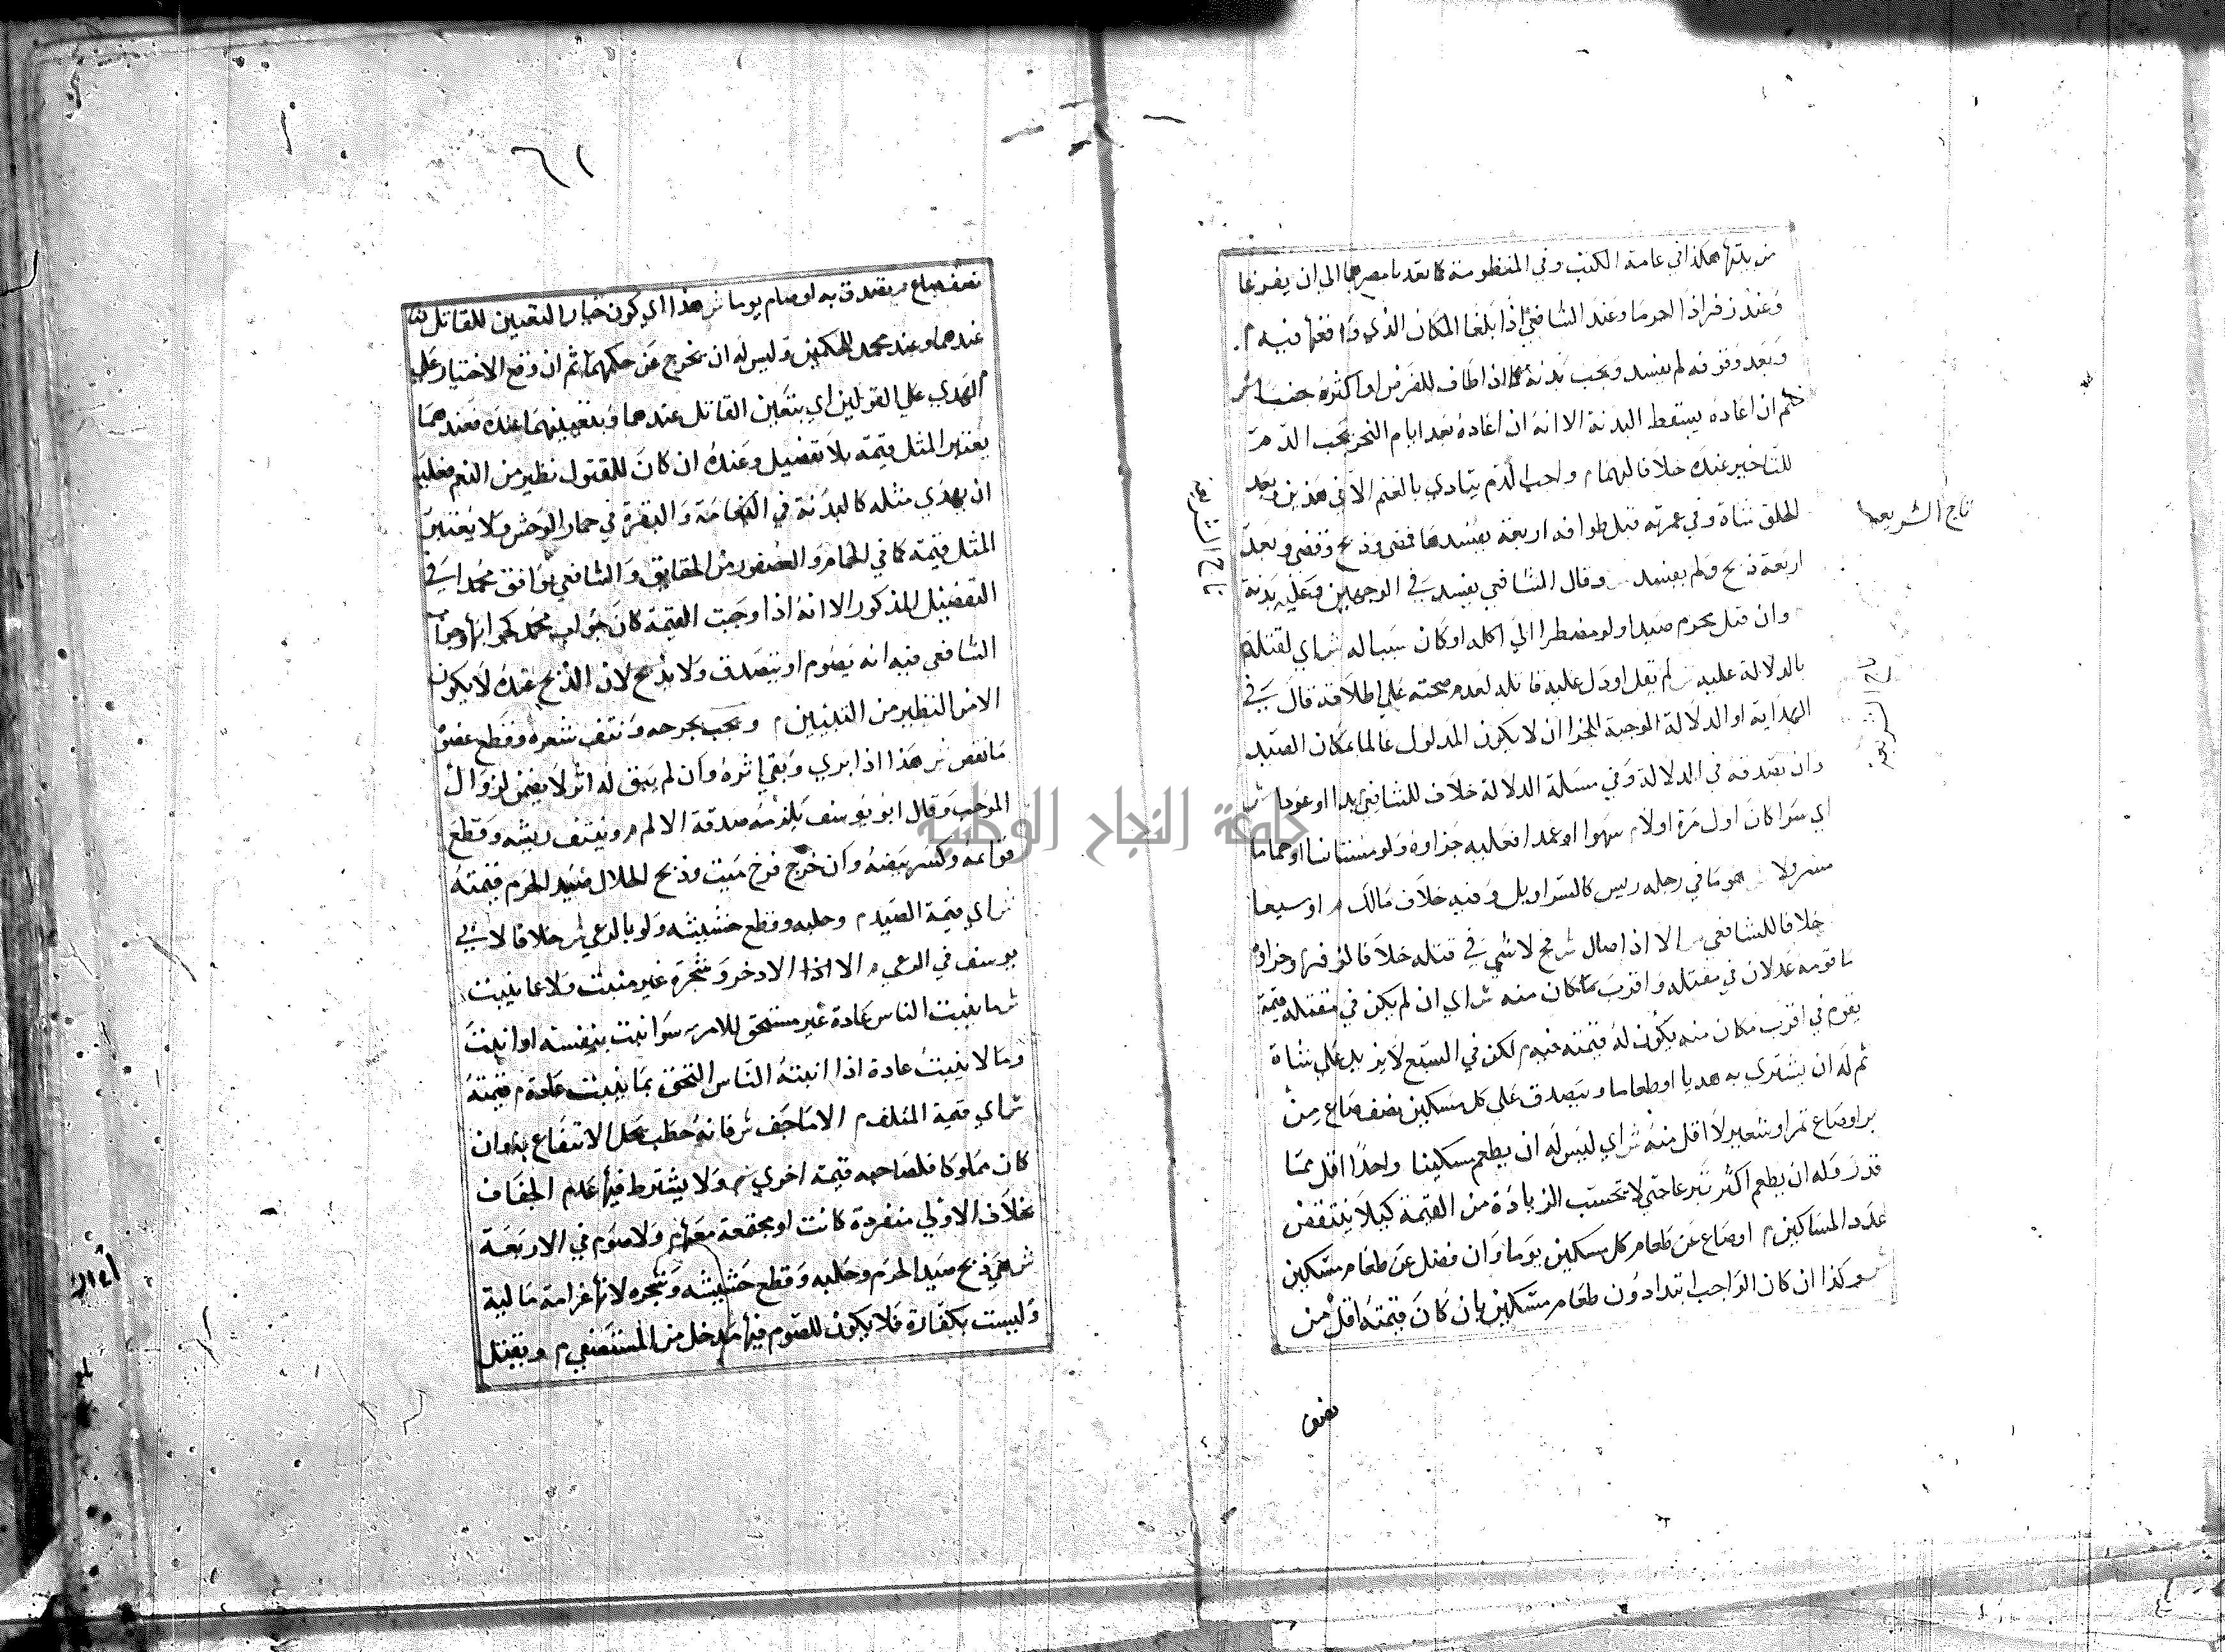 من بيتها هكذا في عامة الكتب وفي المنظومة كما بعد ما مصرهما الى ان يفرغا
وعند زفر اذا احرما وعند الشافعي اذا بلغا المكان الذي واقعها فيه م
وبعد وقوفه لم يفسد وتجب بدنة كما اذا طاف للفرض او اكثره جنبا ش
ثم ان اعاده يسقط البدنة الا انه ان اعاده بعد ايام النحر يجب الدم
للتاخير عنده خلافا لهما م واجب الدم يتادي بالغنم الا في هذين وبعد
الحلق شاة وفي عمرته قبل طوافه اربعة يفسدها فمضى وذبح وقضى وبعد
اربعة ذبح ولم يفسد وقال الشافعي يفسد في الوجهين وعليه بدنة
وان قتل محرم صيدا ولو مضطرا الى اكله او كان سببا له ش اي لقتله
بالدلالة عليه لم يقل او دل عليه قاتله لعدم صحته علي اطلاقه قال في
الهداية او الدلالة الموجبة للجزا ان لا يكون المدلول عالما بمكان الصيد
وان يصدقه في الدلالة وفي مسئلة الدلالة خلاف للشافعي بدا او عودا ش
اي سوا كان اول مرة اولا م سهوا او عمدا فعليه جزاوه ولو مستانسا او حماما
مسرولا هو ما في رجله ريش كالسراويل وفيه خلاف مالك م او سبعا
خلافا للشافعي الا اذا صال ش فح لا شي في قتله خلافا لزفر م وجزاوه
ما قومه عدلان في مقتله واقرب مكان منه ش اي ان لم يكن في مقتله قيمة
يقوم في اقرب مكان منه يكون له قيمته فيه م لكن في السبع لا يزيد علي شاة
ثم له ان يشتري به هديا او طعاما ويتصدق علي كل مسكين نصف صاع من
بر او صاع تمر او شعير لا اقل منه ش اي ليس له ان يطعم مسكينا واحدا اقل مما
قدر وله ان يطعم اكثر تبرعا حتي لا تحتسب الزيادة من القيمة كيلا ينتقض
عدد المساكين م او صاع عن طعام كل مسكين يوما وان فضل عن طعام مسكين
ش وكذا ان كان الواجب ابتدا دون طعام مسكين بان كان قيمته اقل من
نصف
تاج الشريعه
تاج الشريعه
٦١
نصف صاع م يتصدق به او صام يوما ش هذا اي كون خيار التعيين للقاتل
عندهما وعند محمد للحكمين وليس له ان يخرج عن حكمهما ثم ان وقع الاختيار علي
الهدي علي القولين اي بتعين القاتل عندهما وبتعيينهما عنده فعندهما
يعتبر المثل قيمة بلا تفصيل وعنده ان كان للمقتول نظير من النعم فعليه
ان يهدي مثله كالبدنة في النعامة والبقرة في حمار الوحش ولا يعتبر
المثل قيمة كما في الحمام والعصفور من الحقايق والشافعي يوافق محمدا في
التفصيل المذكور الا انه اذا وجبت القيمة كان جواب محمد كجوابهما وجواب
الشافعي فيه انه يصوم او يتصدق ولا يذبح لان الذبح عنده لا يكون
الا من النظير من القبيلين م ويجب بجرحه ونتف شعره وقطع عضوه
ما نقص ش هذا اذا بري وبقي اثره وان لم يبق له اثر لا يضمن لزوال
الموجب وقال ابو يوسف يلزمه صدقة الالم م وبنتف ريشه وقطع
قوائمه وكسر بيضه وان خرج فرخ ميت وذبح الحلال صيد الحرم قيمته
ش اي قيمة الصيد م وحلبه وقطع حشيشه ولو بالرعي ش خلافا لابي
يوسف في الرعي م الا اذا الاذخر وشجرة غير منبت ولا مما ينبت
ش ما ينبت الناس عادة غير مستحق للامن سوا نبت بنفسه او انبت
وما لا ينبت عادة اذا انبته الناس التحق بما ينبت عادة م قيمته
ش اي قيمة المتلف م الا ما جف ش فانه حطب يحل الانتفاع به وان
كان مملوكا فلصاحبه قيمة اخري ولا يشترط فيها عدم الجفاف
بخلاف الاولي منفردة كانت او مجتمعة معها م ولا صوم في الاربعة
ش هي ذبح صيد الحرم وحلبه وقطع حشيشه وشجره لانها غرامة مالية
وليست بكفارة فلا يكون للصوم فيها مدخل من المستصفي م وبقتل
جامعة النجاح الوطنية